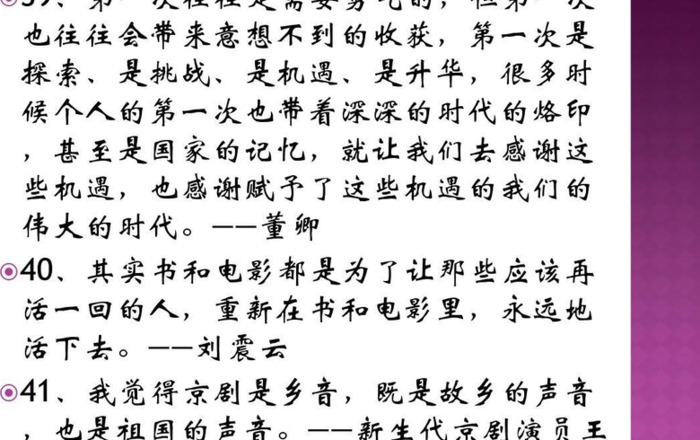 39、第一次往往是需要勇气的，但第一次
也往往会带来意想不到的收获，第一次是
探索、是挑战、是机遇、是升华，很多时
候个人的第一次也带着深深的时代的烙印
，甚至是国家的记忆，就让我们去感谢这
些机遇，也感谢赋予了这些机遇的我们的
伟大的时代。——董卿
40、其实书和电影都是为了让那些应该再
活一回的人，重新在书和电影里，永远地
活下去。——刘震云
41、我觉得京剧是乡音，既是故乡的声音
，也是祖国的声音。——新生代京剧演员王